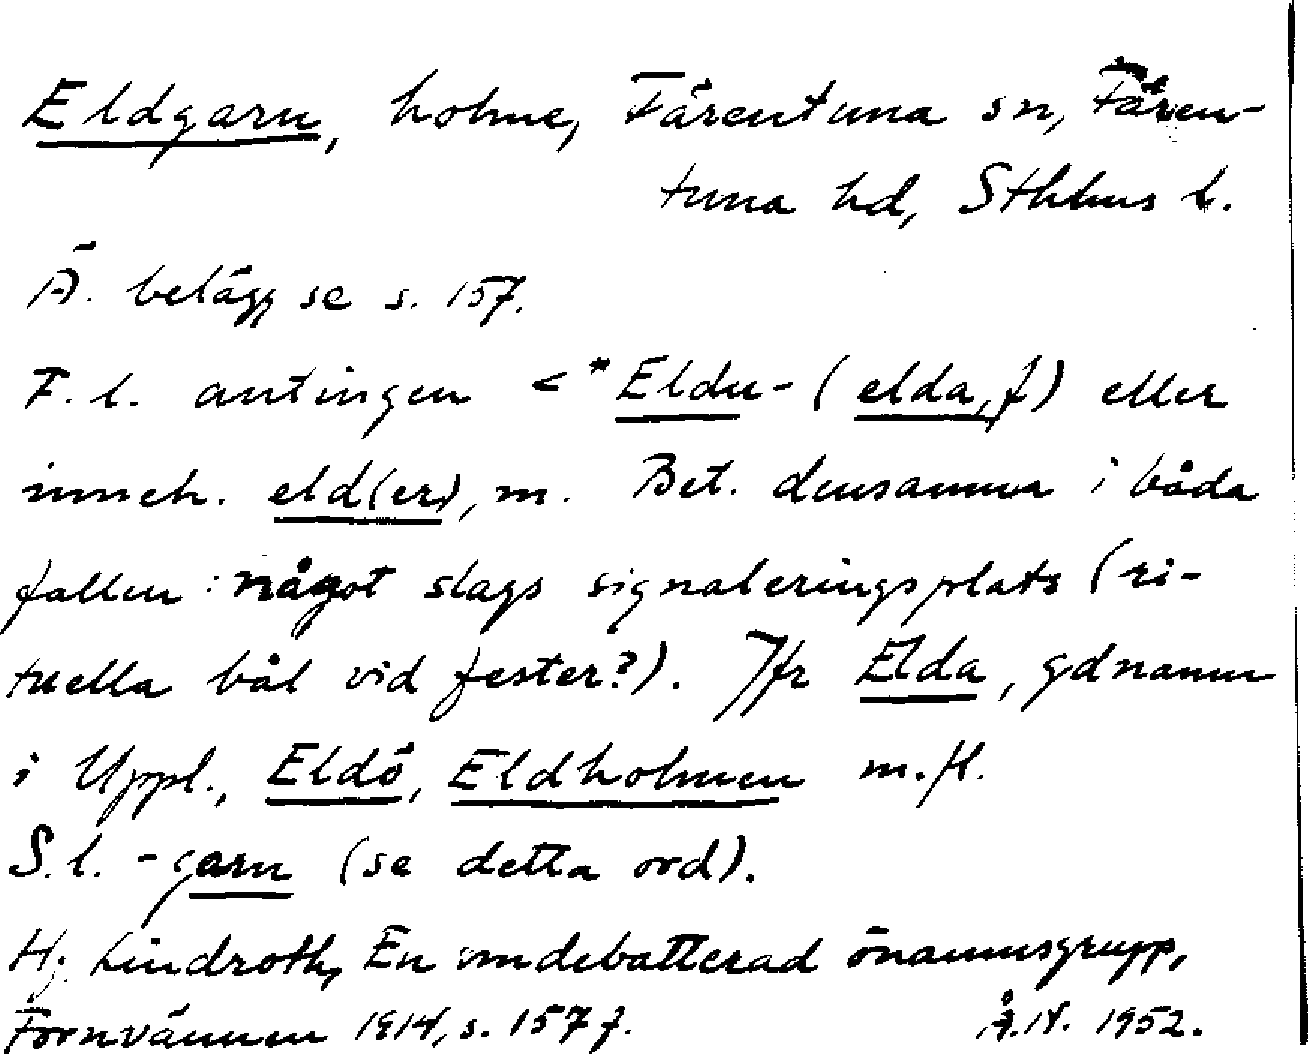 Eldgarn, holme, Färentuna sn, Fären-
tuna hd, Sthlms l.
Ä. belägg se s. 157.
F.l. antingen < *Eldu- (elda, f) eller
inneh. eld(er), m. Bet. densamma i båda
fallen: något slags signaleringsplats (ri-
tuella bål vid fester?). Jfr Elda, gdnamn
i Uppl., Eldö, Eldholmen m.fl.
S.l. -garn (se detta ord).
Hj. Lindroth, En omdebatterad önamnsgrupp,
Fornvännen 1914, s. 157 f. Å.N. 1952.